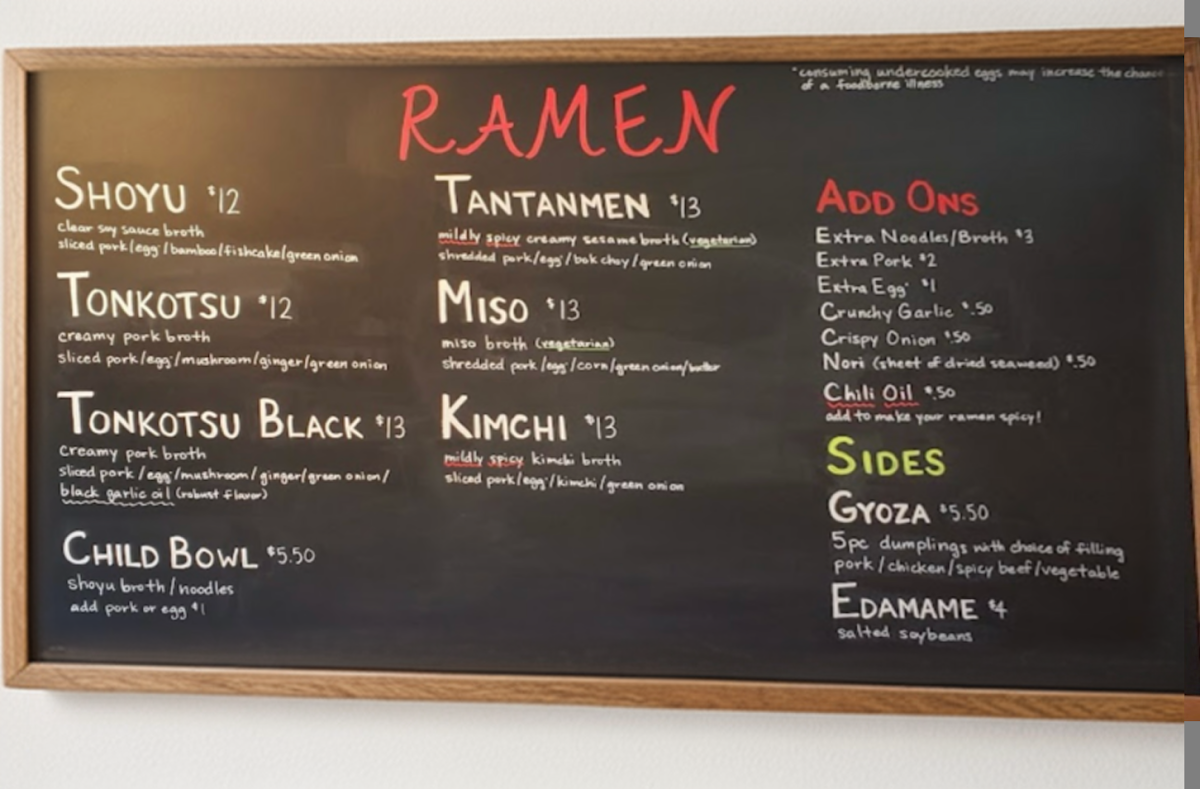 *consuming undercooked eggs may increase the chance
of a foodborne illness
RAMEN
SHOYU $12
clear soy sauce broth
sliced pork/egg*/bamboo/fishcake/green onion
TONKOTSU $12
creamy pork broth
sliced pork/egg*/mushroom/ginger/green onion
TONKOTSU BLACK $13
creamy pork broth
sliced pork/egg*/mushroom/ginger/green onion/
black garlic oil (robust flavor)
CHILD BOWL $5.50
shoyu broth/noodles
add pork or egg $1
TANTANMEN $13
mildly spicy creamy sesame broth (vegetarian)
shredded pork/egg*/bok choy/green onion
MISO $13
miso broth (vegetarian)
shredded pork/egg*/corn/green onion/butter
KIMCHI $13
mildly spicy kimchi broth
sliced pork/egg*/kimchi/green onion
ADD ONS
Extra Noodles/Broth $3
Extra Pork $2
Extra Egg* $1
Crunchy Garlic $.50
Crispy Onion $.50
Nori (sheet of dried seaweed) $.50
Chili Oil $.50
add to make your ramen spicy!
SIDES
GYOZA $5.50
5pc dumplings with choice of filling
pork/chicken/spicy beef/vegetable
EDAMAME $4
salted soybeans